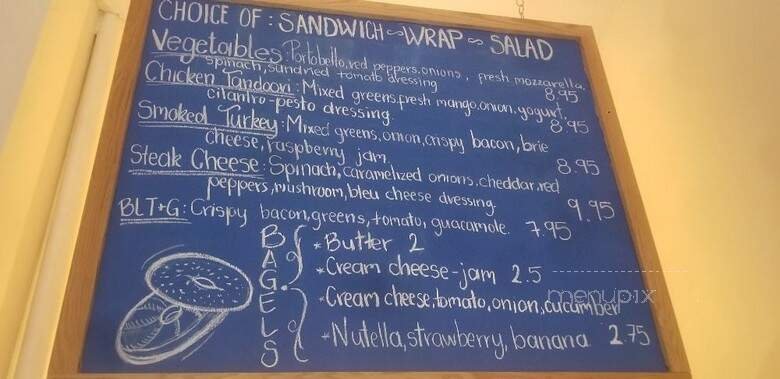 CHOICE OF: SANDWICH ~ WRAP ~ SALAD
Vegetables: Portobello, red peppers, onions, fresh mozzarella,
spinach, sundried tomato dressing 8.95
Chicken Tandoori: Mixed greens, fresh mango, onion, yogurt,
cilantro-pesto dressing. 8.95
Smoked Turkey: Mixed greens, onion, crispy bacon, brie
cheese, raspberry jam 8.95
Steak Cheese: Spinach, caramelized onions, cheddar, red
peppers, mushroom, bleu cheese dressing. 9.95
BLT+G: Crispy bacon, greens, tomato, guacamole. 7.95
BAGELS
* Butter 2
* Cream cheese-jam 2.5
* Cream cheese, tomato, onion, cucumber
* Nutella, strawberry, banana 2.75
menupix